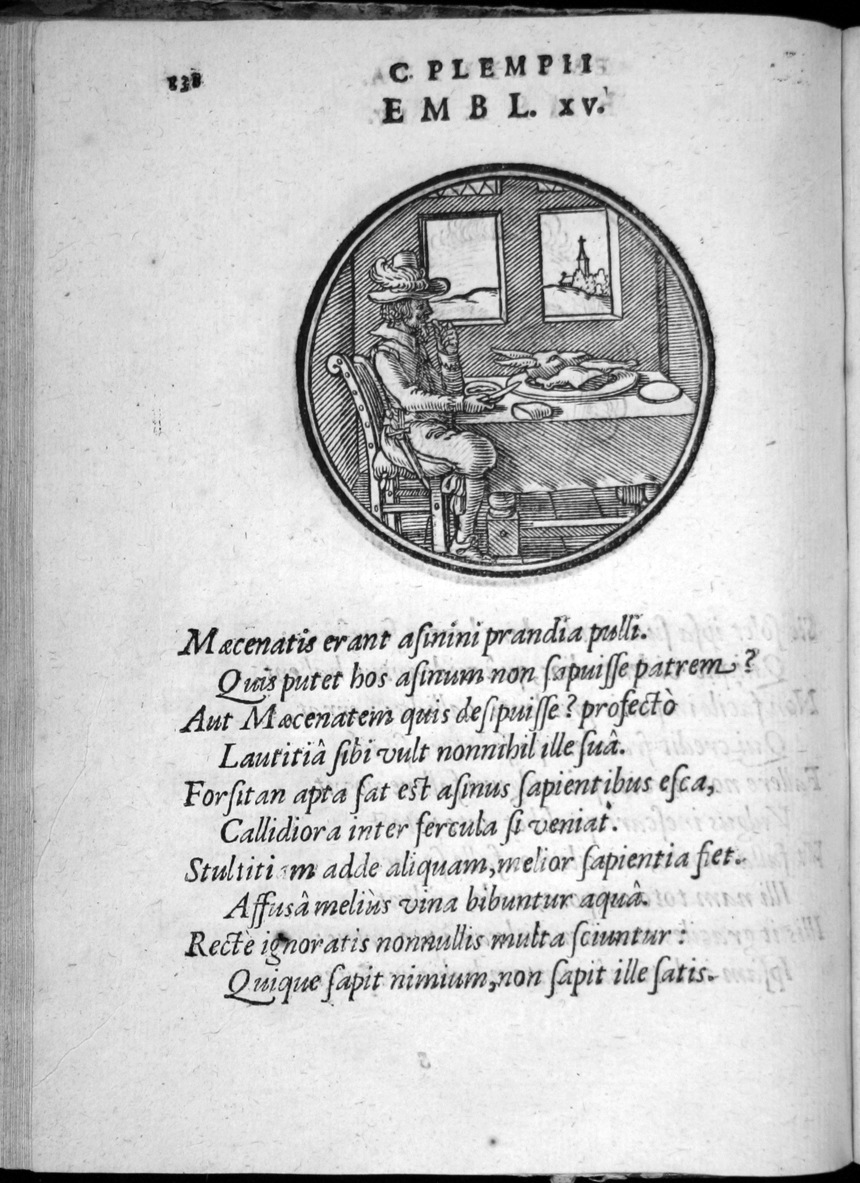 138
C. PLEMPII
EMBL. XV.
Mæcenatis erant aſinini prandia pulli.
Quis putet hos aſinum non ſapuiſſe patrem?
Aut Mæcenatem quis deſipuiſſe? profectò
Lautitiâ ſibi vult nonnihil ille ſuâ.
Forſitan apta ſat eſt aſinus ſapientibus eſca,
Callidiora inter fercula ſi veniat.
Stultiti m adde aliquam, melior ſapientia fiet.
Affusâ meliùs vina bibuntur aquâ.
Rectè ignoratis nonnullis multa ſciuntur:
Quique ſapit nimium, non ſapit ille ſatis.